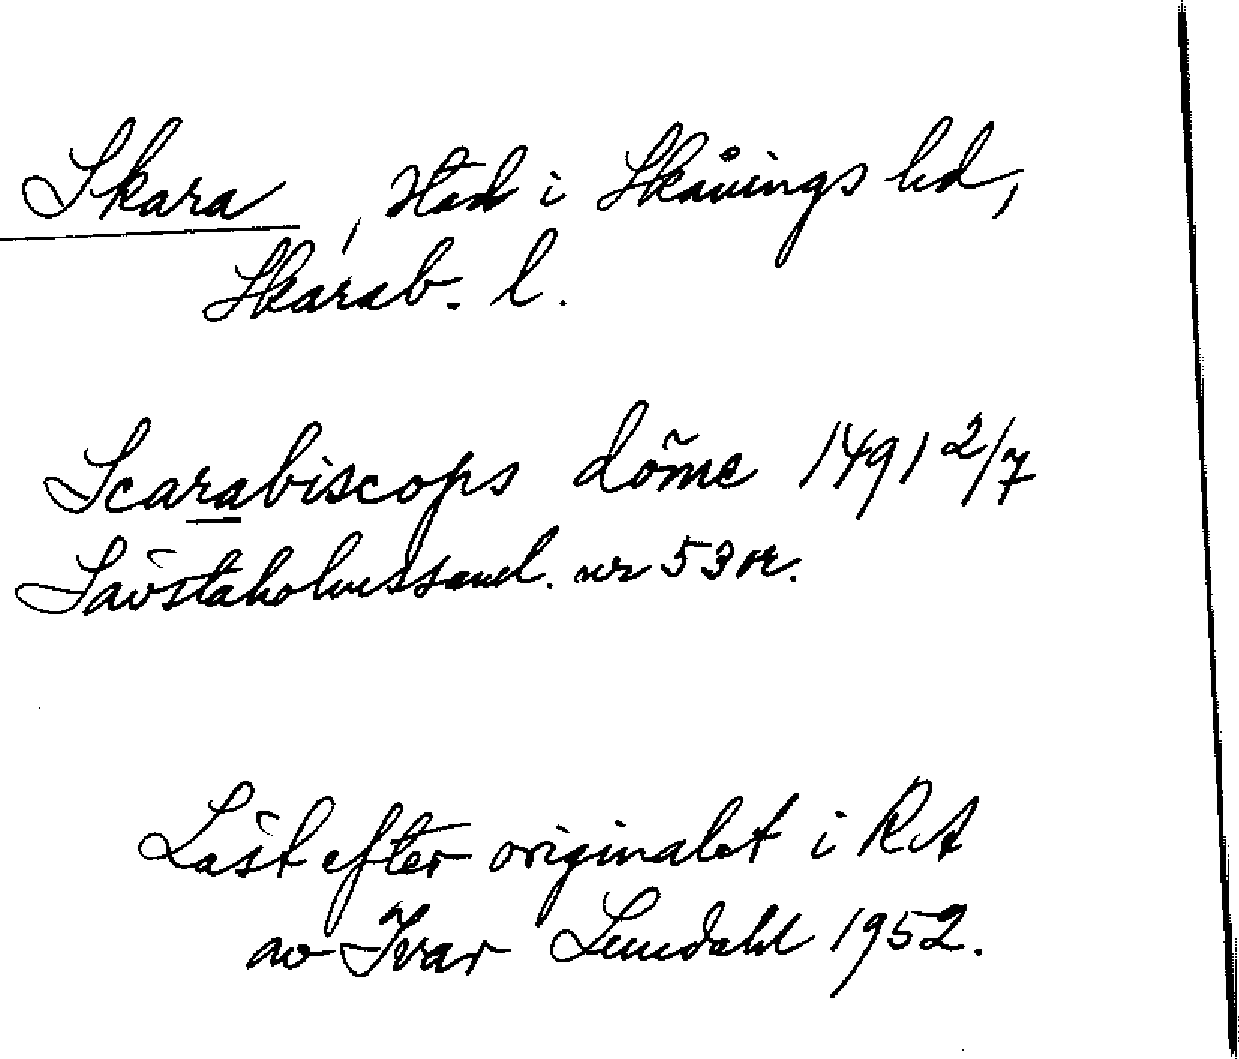 Skara, stad i Skånings hd,
Skarab. l.
Scarabiscops döme 1491 2/7
Sävstaholmssaml. nr 53 or.
Läst efter originalet i RA
av Ivar Lundahl 1952.